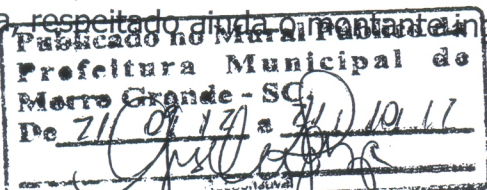 a, respeitado ainda o montante in
Publicado no Mural Público da
Prefeitura Municipal de
Morro Grande - SC.
De 21/ 09 / 17 a 21/ 10/ 17